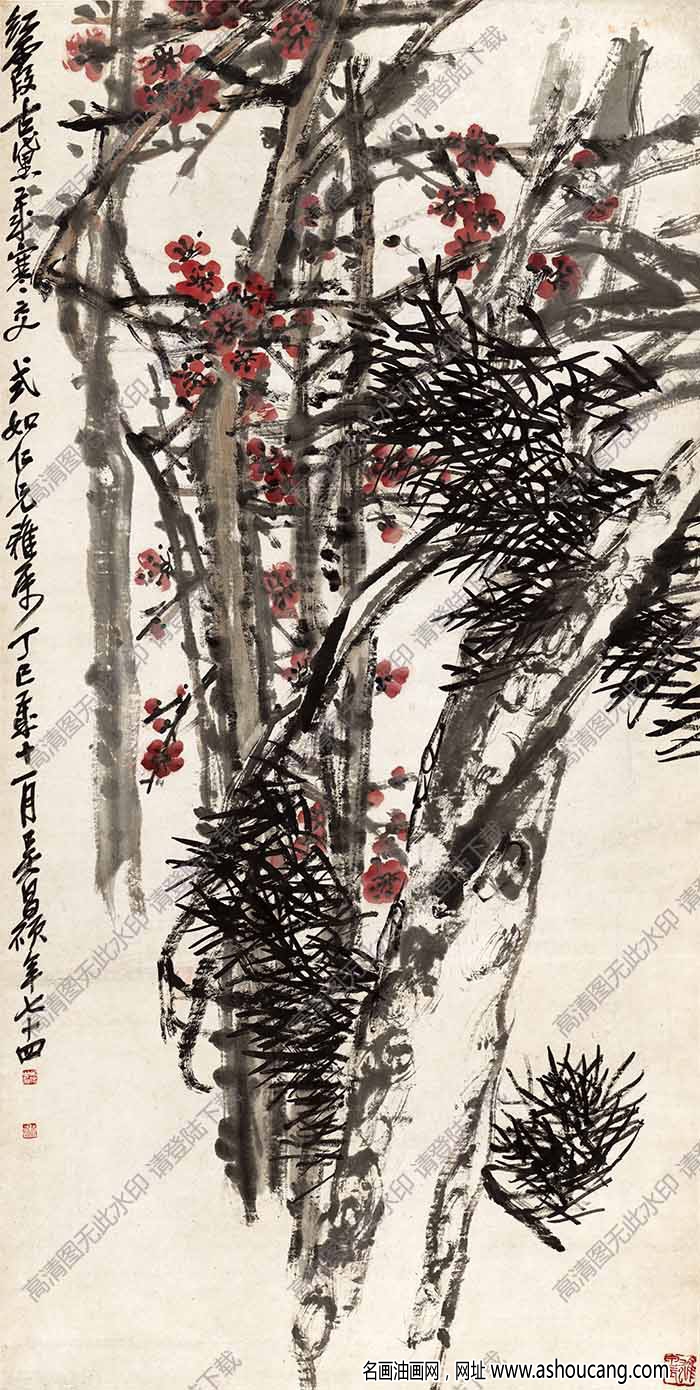 红霞古黛岁寒交 式如仁兄雅属 丁巳岁十一月吴昌硕年七十四
高清图无此水印 请登陆下载
名画油画网，网址 www.ashoucang.com